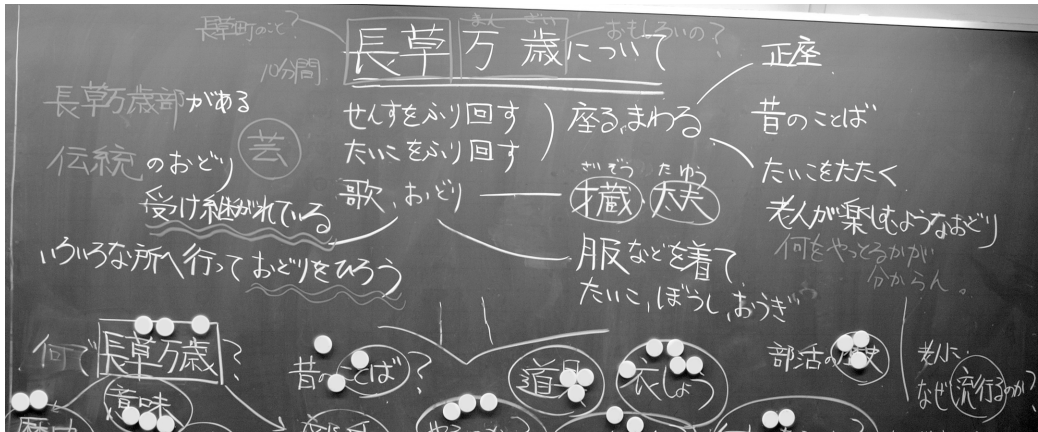 長草町のこと?
まん ざい
長草万歳について
おもしろいの?
10分間
長草万歳部がある
伝統のおどり
芸
受け継がれている
いろいろな所へ行っておどりをひろう
せんすをふり回す
たいこをふり回す
歌、おどり
座る、まわる
さいぞう たゆう
才蔵、太夫
服などを着て
たいこ、ぼうし、おうぎ
正座
昔のことば
たいこをたたく
老人が楽しむようなおどり
何をやっとるかが
分からん。
何で長草万歳?
意味
歴史
昔のことば?
部活
道具
衣しょう
部活の歴史
老人に
なぜ流行るのか?